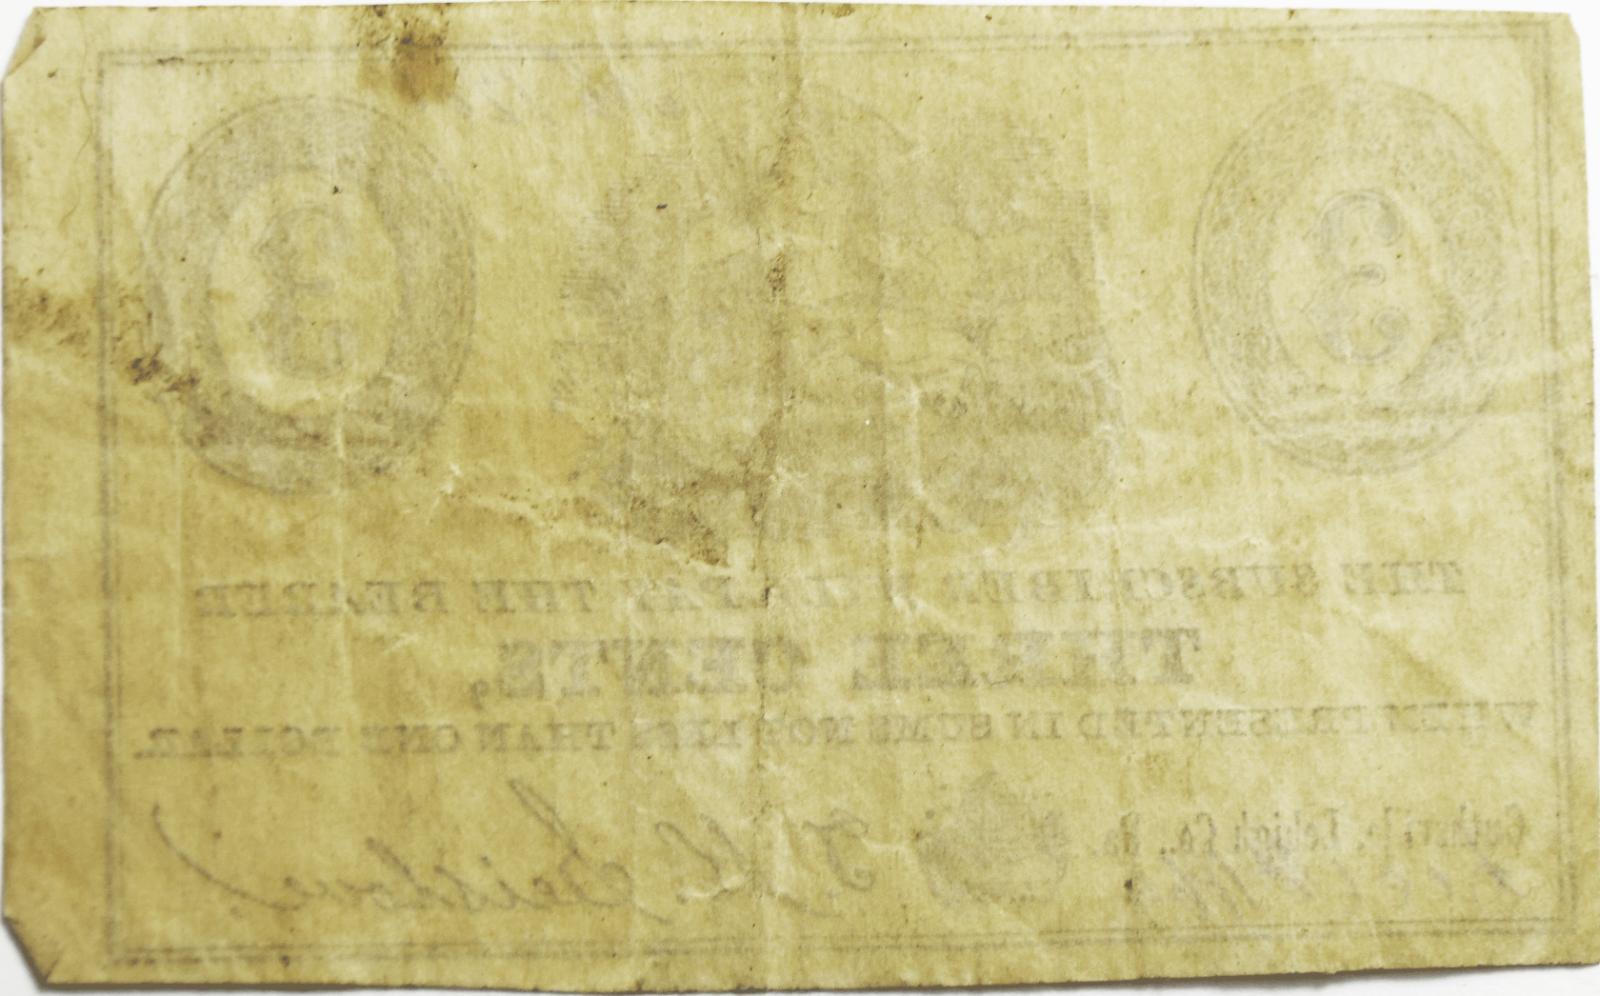 3 3
THE SUBSCRIBER WILL PAY THE BEARER
THREE CENTS,
WHEN PRESENTED IN SUMS NOT LESS THAN ONE DOLLAR.
Guthsville, Lehigh Co., Pa.